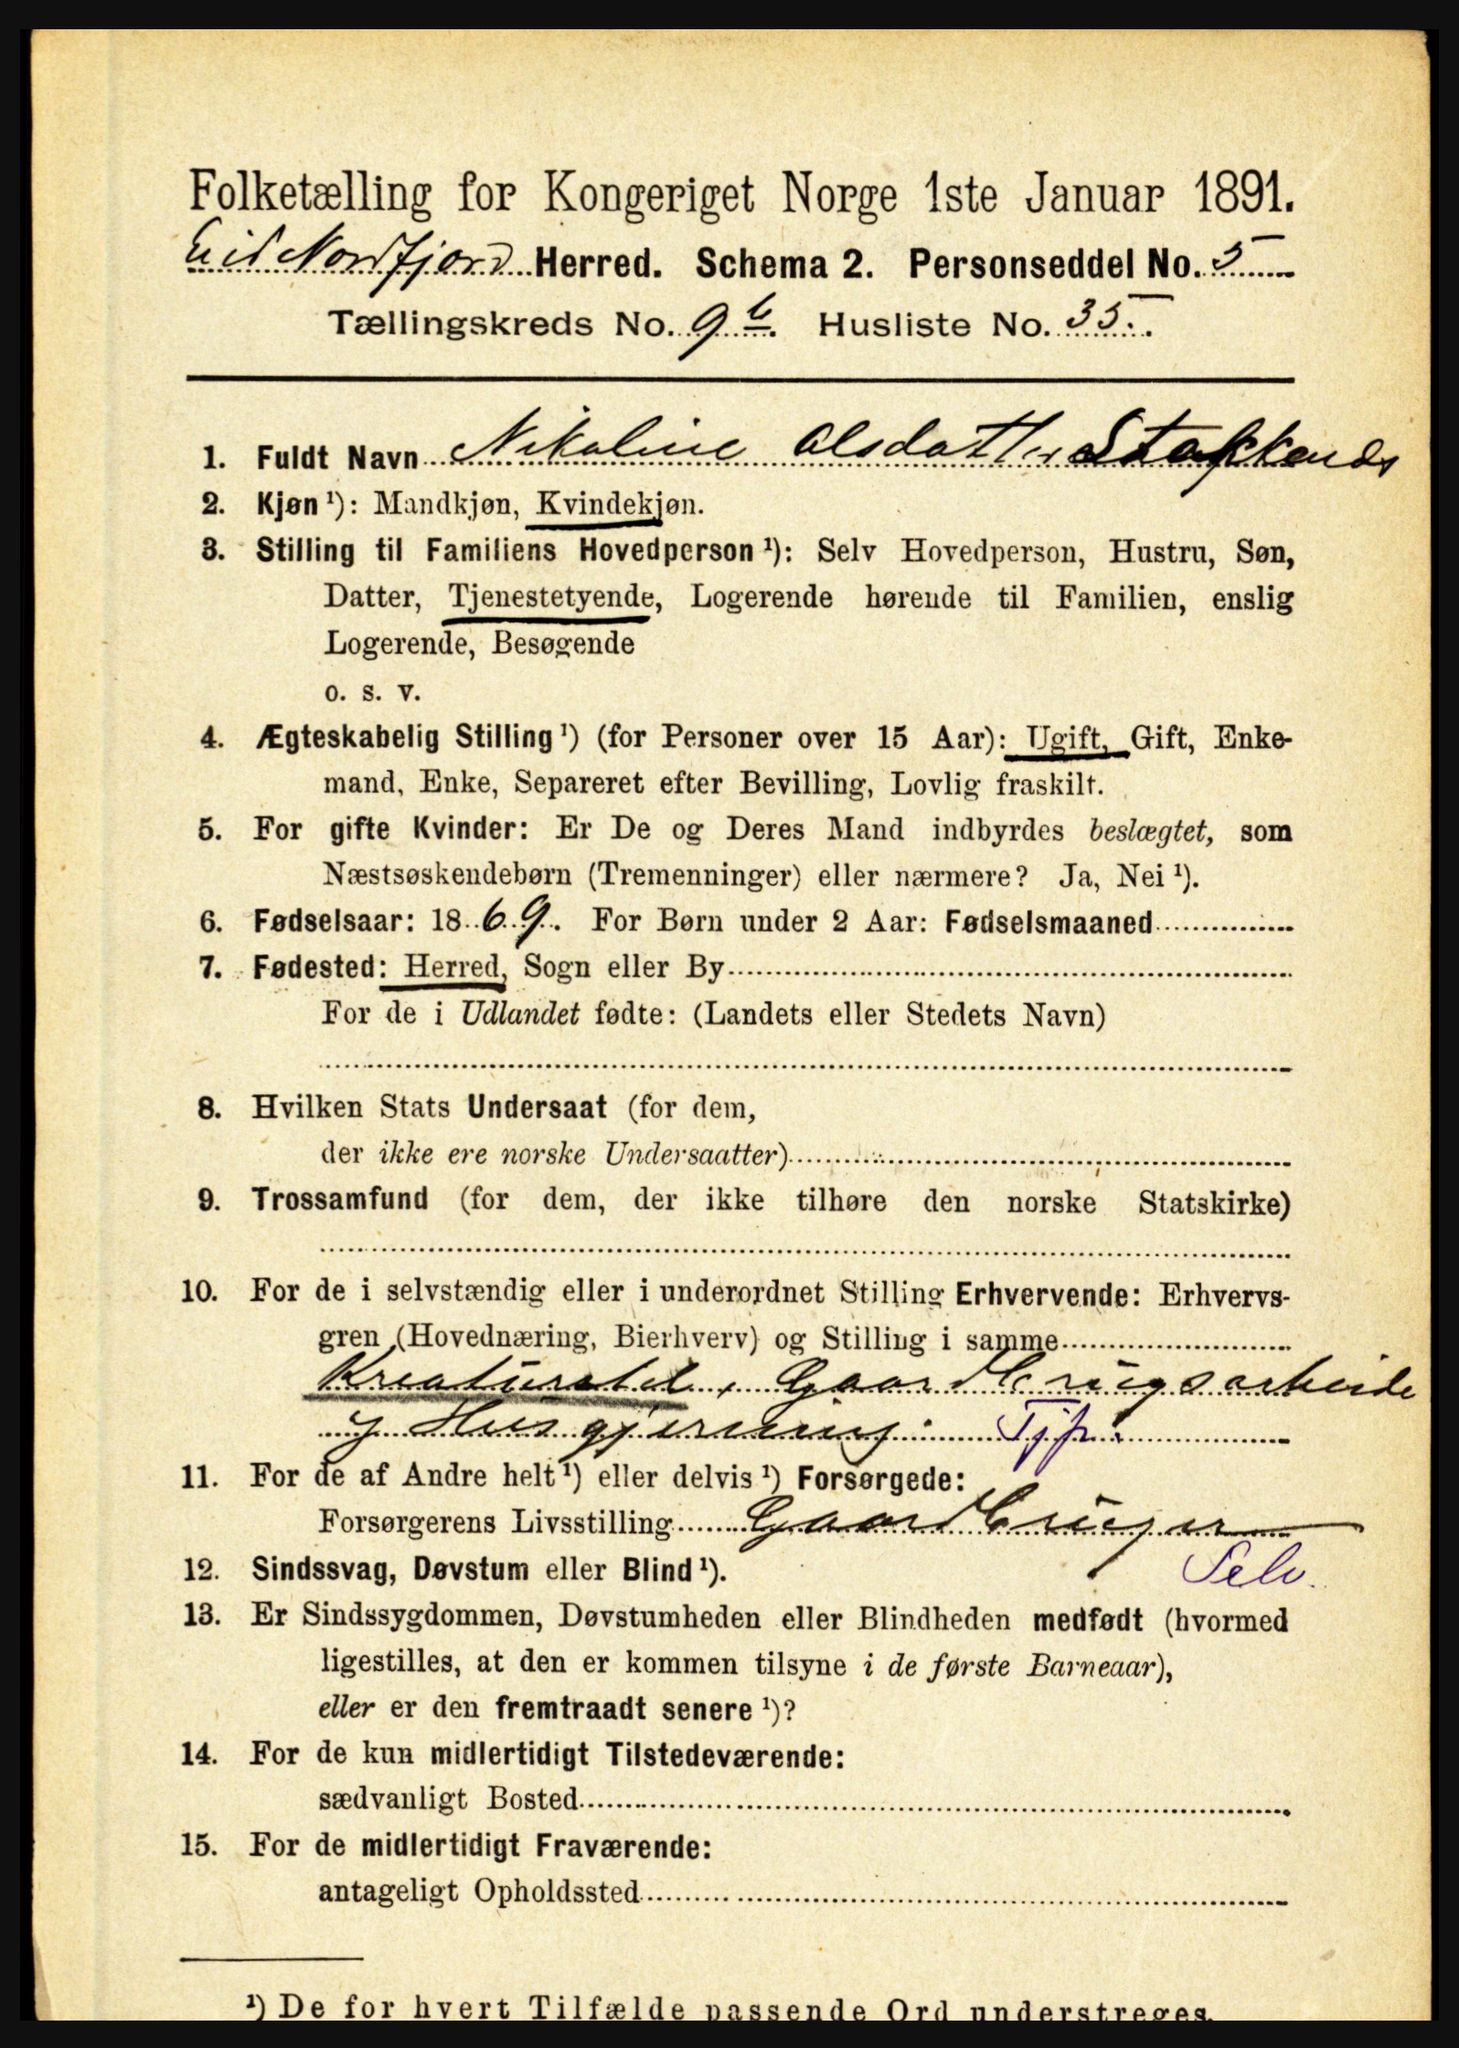 Folketælling for Kongeriget Norge 1ste Januar 1891.
Eid Nordfjord Herred. Schema 2. Personseddel No. 5
Tællingskreds No. 9 b. Husliste No. 35.
1. Fuldt Navn Nikoline Olsdatter
2. Kjøn ¹): Mandkjøn, Kvindekjøn.
3. Stilling til Familiens Hovedperson ¹): Selv Hovedperson, Hustru, Søn,
Datter, Tjenestetyende, Logerende hørende til Familien, enslig
Logerende, Besøgende
o. s. v.
4. Ægteskabelig Stilling ¹) (for Personer over 15 Aar): Ugift, Gift, Enke-
mand, Enke, Separeret efter Bevilling, Lovlig fraskilt.
5. For gifte Kvinder: Er De og Deres Mand indbyrdes beslægtet, som
Næstsøskendebørn (Tremenninger) eller nærmere? Ja, Nei ¹).
6. Fødselsaar: 1869. For Børn under 2 Aar: Fødselsmaaned
7. Fødested: Herred, Sogn eller By
For de i Udlandet fødte: (Landets eller Stedets Navn)
8. Hvilken Stats Undersaat (for dem,
der ikke ere norske Undersaatter)
9. Trossamfund (for dem, der ikke tilhøre den norske Statskirke)
10. For de i selvstændig eller i underordnet Stilling Erhvervende: Erhvervs-
gren (Hovednæring, Bierhverv) og Stilling i samme
Kreaturstel, Gaardbrugsarbeide
og Husgjerning. Tjp.
11. For de af Andre helt ¹) eller delvis ¹) Forsørgede:
Forsørgerens Livsstilling Gaardbruger
Selv.
12. Sindssvag, Døvstum eller Blind ¹).
13. Er Sindssygdommen, Døvstumheden eller Blindheden medfødt (hvormed
ligestilles, at den er kommen tilsyne i de første Barneaar),
eller er den fremtraadt senere ¹)?
14. For de kun midlertidigt Tilstedeværende:
sædvanligt Bosted
15. For de midlertidigt Fraværende:
antageligt Opholdssted
¹) De for hvert Tilfælde passende Ord understreges.